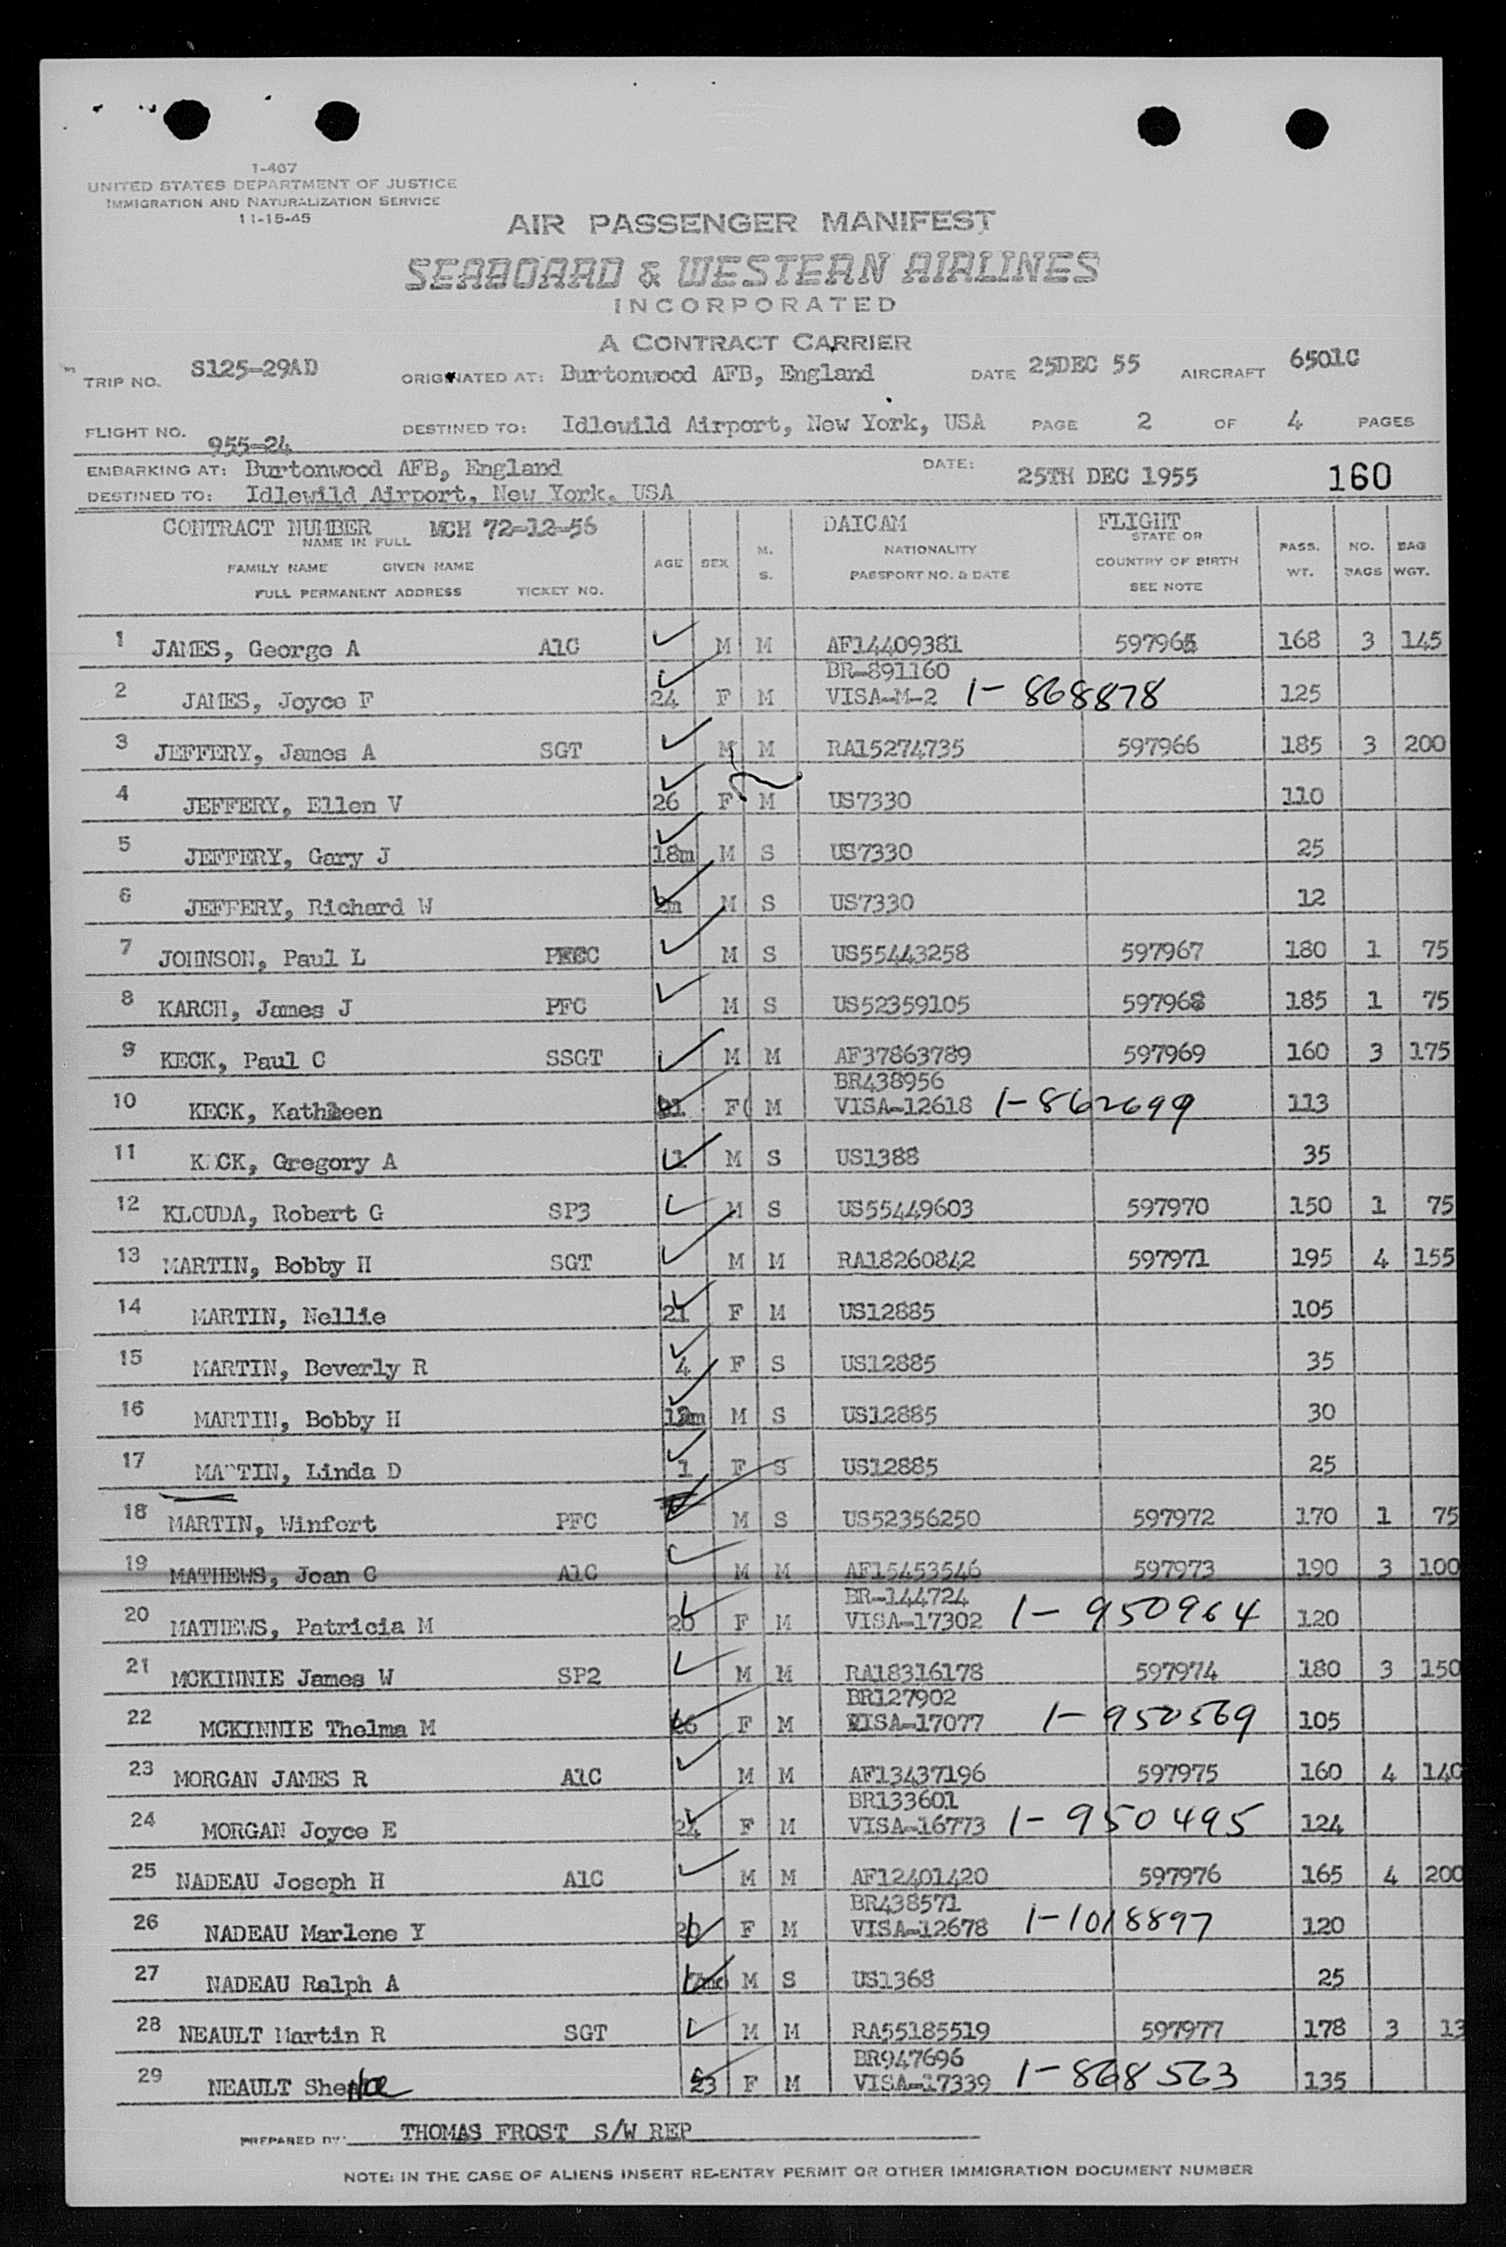 1-467
UNITED STATES DEPARTMENT OF JUSTICE
IMMIGRATION AND NATURALIZATION SERVICE
11-15-45
AIR PASSENGER MANIFEST
SEABOARD & WESTERN AIRLINES
INCORPORATED
A CONTRACT CARRIER
TRIP NO. S125-29AD ORIGINATED AT: Burtonwood AFB, England DATE 25DEC 55 AIRCRAFT 6501C
FLIGHT NO. 955-24 DESTINED TO: Idlewild Airport, New York, USA PAGE 2 OF 4 PAGES
EMBARKING AT: Burtonwood AFB, England DATE: 25TH DEC 1955 160
DESTINED TO: Idlewild Airport, New York, USA
CONTRACT NUMBER MCH 72-12-56 DAICAM FLIGHT
NAME IN FULL
FAMILY NAME GIVEN NAME
FULL PERMANENT ADDRESS TICKET NO. AGE SEX M. S. NATIONALITY PASSPORT NO. & DATE STATE OR COUNTRY OF BIRTH SEE NOTE PASS. WT. NO. BAGS BAG WGT.
1 JAMES, George A A1C M M AF14409381 597965 168 3 145
2 JAMES, Joyce F 24 F M BR-891160 VISA-M-2 1-868878 125
3 JEFFERY, James A SGT M M RA15274735 597966 185 3 200
4 JEFFERY, Ellen V 26 F M US7330 110
5 JEFFERY, Gary J 18m M S US7330 25
6 JEFFERY, Richard W 2m M S US7330 12
7 JOHNSON, Paul L M S US55443258 597967 180 1 75
8 KARCH, James J PFC M S US52359105 597968 185 1 75
9 KECK, Paul C SSGT M M AF37863789 597969 160 3 175
10 KECK, Kathleen 21 F M BR438956 VISA-12618 1-862699 113
11 KECK, Gregory A 1 M S US1388 35
12 KLOUDA, Robert G SP3 M S US55449603 597970 150 1 75
13 MARTIN, Bobby H SGT M M RA18260842 597971 195 4 155
14 MARTIN, Nellie 21 F M US12885 105
15 MARTIN, Beverly R 4 F S US12885 35
16 MARTIN, Bobby H M S US12885 30
17 MARTIN, Linda D 1 F S US12885 25
18 MARTIN, Winfort PFC M S US52356250 597972 170 1 75
19 MATHEWS, Jean C A1C M M AF15453546 597973 190 3 100
20 MATHEWS, Patricia M 20 F M BR-144724 VISA-17302 1-950964 120
21 MCKINNIE James W SP2 M M RA18316178 597974 180 3 150
22 MCKINNIE Thelma M 26 F M BR127902 VISA-17077 1-950569 105
23 MORGAN JAMES R A1C M M AF13437196 597975 160 4 140
24 MORGAN Joyce E 24 F M BR133601 VISA-16773 1-950495 124
25 NADEAU Joseph H A1C M M AF12401420 597976 165 4 200
26 NADEAU Marlene Y 20 F M BR438571 VISA-12678 1-1018897 120
27 NADEAU Ralph A M S US1368 25
28 NEAULT Martin R SGT M M RA55185519 597977 178 3 13
29 NEAULT 23 F M BR947696 VISA-17339 1-868563 135
PREPARED BY: THOMAS FROST S/W REP
NOTE: IN THE CASE OF ALIENS INSERT RE-ENTRY PERMIT OR OTHER IMMIGRATION DOCUMENT NUMBER